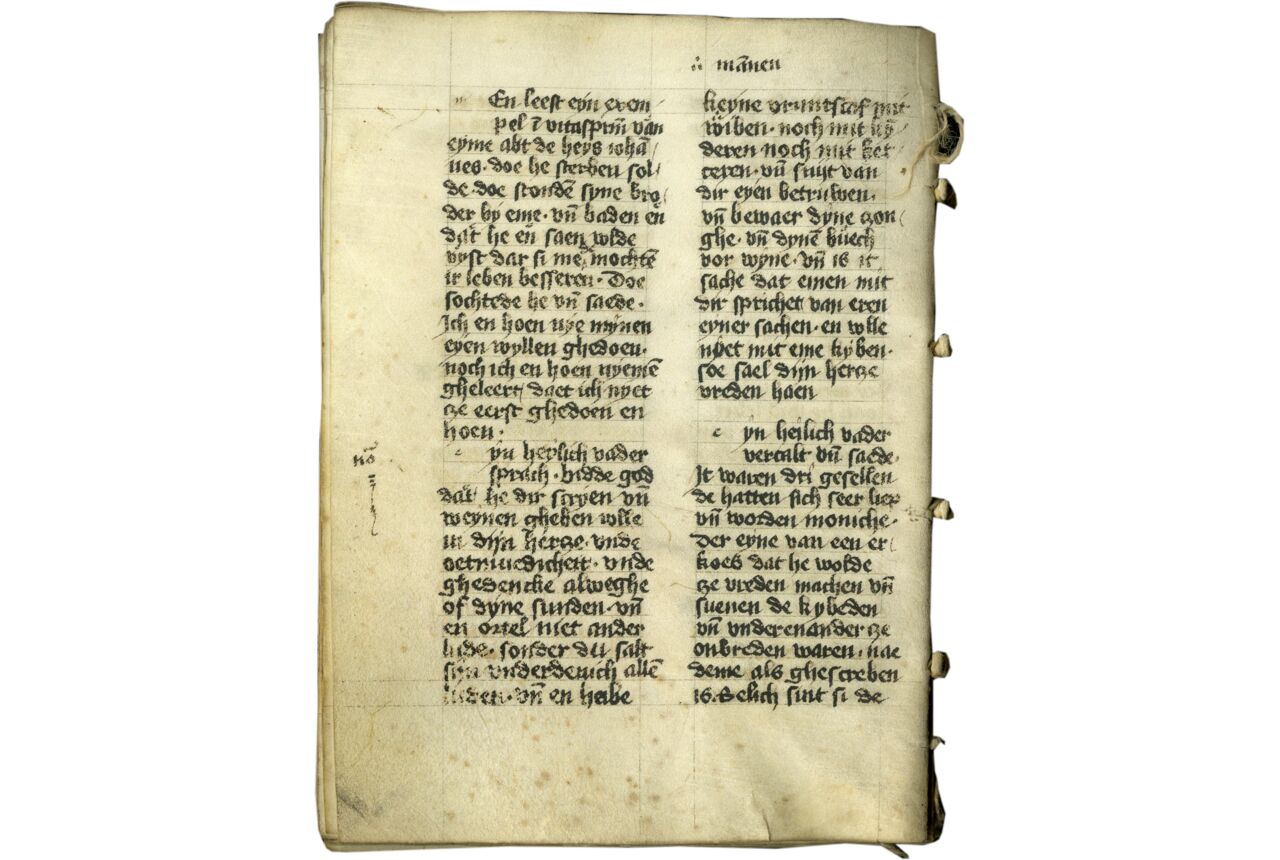 mānen
En leest eyn exem
pel ī vitasprm̄ van
eyme abt de heys iohā
nes. doe he sterben sol
de. doe stonden̄ syne bro
der by eme. vn̄ baden en̄
dat he en̄ saen wlde
vyst dar si me mochtē
ir leben besseren. Doe
sochtede he vn̄ saede.
Ich en hoen nye mynen
eyen wyllen ghedoen.
noch ich en hoen nyemē
gheleert daet ich nyet
ze eerst ghedoen en
hoen.
yn heylich vader
sprach. bidde god
dat he dir scryen vn̄
weynen gheben wlle
in dijn hercze. vnde
oetmuedicheit. vnde
ghedencke alweghe
of dyne sunden. vn̄
en ortel niet ander
lude. sonder du salt
sijn vnderdenich allē
luden. vn̄ en habe
keyne vruntscaf mit
wiben. noch mit kỹ
deren noch mit ket
ceren. vn̄ snijt van
dir eyen betruwen.
vn̄ bewaer dyne zon
ghe. vn̄ dynē buech
vor wyne. vn̄ is it
sache dat einen mit
dir sprichet van eren
eyner sachen. en wlle
nyet mit eme kyben.
soe sael dijn hercze
vreden haen
yn heilich vader
vercalt vn̄ saede.
It waren dri gesellen
de hatten sich seer liep
vn̄ worden moniche.
Der eyne van een er
koes dat he wolde
ze vreden machen vn̄
suenen de kybeden
vn̄ vnderenander ze
onvreden waren. nae
deme als ghescreben
is. Selich sint si de
nō